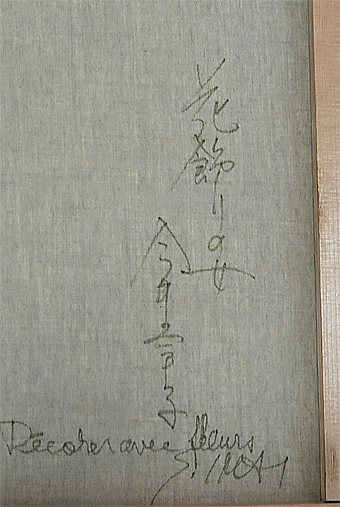 花飾りの女
今井幸子
Décorer avec fleurs
S. IMAI